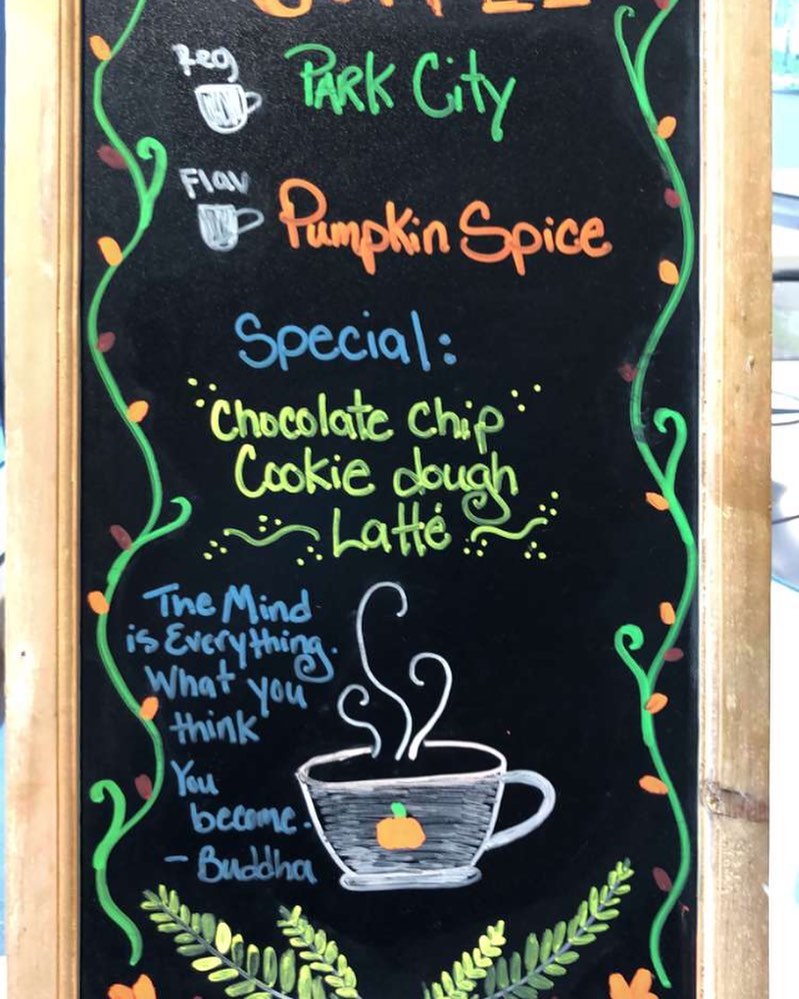 COFFEE
Reg
PARK City
Flav
Pumpkin Spice
Special:
Chocolate Chip
Cookie dough
Latté
The Mind
is Everything.
What you
think
You
become.
- Buddha